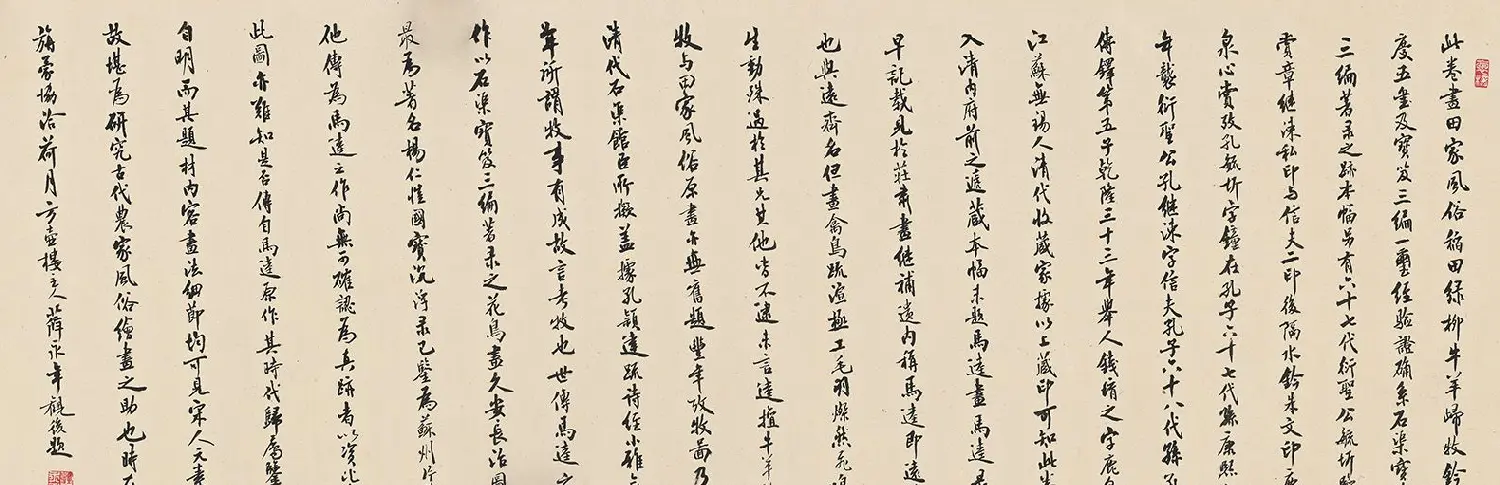 此卷畫田家風俗稻田綠柳牛羊歸牧鈐
慶五璽及寶笈三編一璽經驗證確系石渠寶
三編著录之跡本幅另有六十七代衍聖公毓圻
賞章继涑私印与信夫二印後隔水鈐朱文印
泉心賞孜孔毓圻字鐘在孔子六十七代孫康熙
年襲衍聖公孔继涑字信夫孔子六十八代孫孔
傅鐸第五子乾隆三十三年舉人錢
江蘇無錫人清代收藏家據以上藏印可知此卷
入清内府前之遞藏本幅未題馬逵畫馬逵
早記載見於莊肅畫继補遺内稱馬逵即遠
也與遠齊名但畫禽鳥疏渲極工毛羽燦然飛鳴
生動殊過於其兄其他皆不逮未言逵擅牛羊
牧与田家風俗原畫亦無舊題豐年攷牧啚乃
清代石渠館臣所擬盖據孔穎達疏诗经小雅
年所謂牧事有成故言考牧也世傳馬逵之
作以石渠寶笈三编著录之花鳥畫久安長治圖
最為著名楊仁愷國寶沉浮录已鑒為蘇州片
他傳為馬逵之作尚無可確認為真跡者以资比
此圖亦難知是否傳自馬逵原作其時代歸屬鑒
自明而其題材内容畫法细節均可見宋人元素
故堪為研究古代農家風俗繪畫之助也時
旃蒙協洽荷月方壺樓主人薛永年觀後題